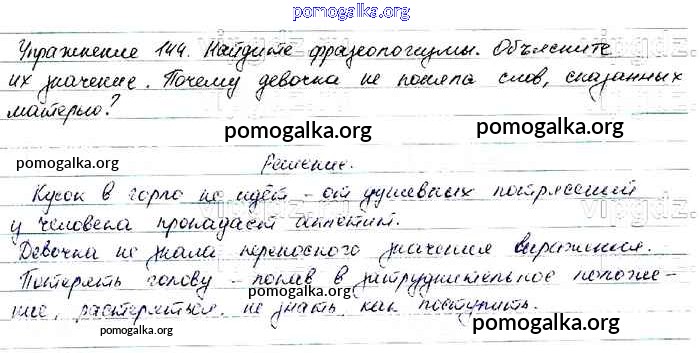 pomogalka.org
Упражнение 144. Найдите фразеологизмы. Объясните
их значение. Почему девочка не поняла слов, сказанных
матерью?
pomogalka.org
pomogalka.org
pomogalka.org
Решение.
Кусок в горло не идёт - от душевных потрясений
у человека пропадает аппетит.
Девочка не знала переносного значения выражения.
Потерять голову - попав в затруднительное положе-
ние, растеряться, не знать, как поступить.
pomogalka.org
pomogalka.org
pomogalka.org